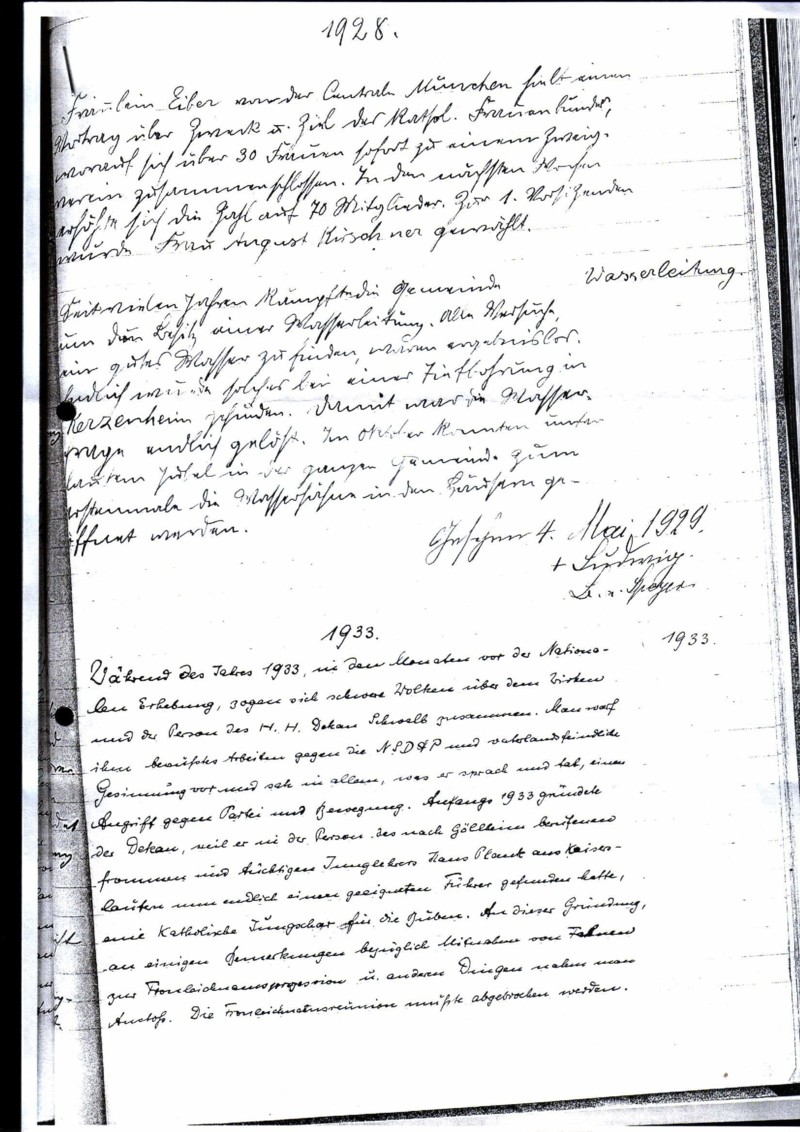 1928.
Fräulein Eiber von der Centrale München hielt einen
Vortrag über Zweck u. Ziel des Kathol. Frauenbundes,
worauf sich über 30 Frauen sofort zu einem Zweig-
verein zusammenschlossen. In den nächsten Wochen
erhöhte sich die Zahl auf 70 Mitglieder. Zur 1. Vorsitzenden
wurde Frau August Kuschner gewählt.
Wasserleitung
Seit vielen Jahren kämpfte die Gemeinde
um den Besitz einer Wasserleitung. Alle Versuche,
ein gutes Wasser zu finden, waren ergebnislos.
Endlich wurde solches bei einer Tiefbohrung in
Kerzenheim gefunden. Damit war die Wasser-
frage endlich gelöst. Im Oktober konnten unter
lautem Jubel in der ganzen Gemeinde zum
erstenmale die Wasserhähne in den Häusern ge-
öffnet werden.
Gesehen 4. Mai 1929.
+ Ludwig.
B. v. Speyer
1933.
1933.
Während des Jahres 1933, in den Monaten vor der Nationa-
len Erhebung, zogen sich schwere Wolken über dem Wirken
und der Person des H. H. Dekan Schwalb zusammen. Man warf
ihm bewußtes Arbeiten gegen die NSDAP und vaterlandsfeindliche
Gesinnung vor und sah in allem, was er sprach und tat, einen
Angriff gegen Partei und Bewegung. Anfangs 1933 gründete
der Dekan, weil er in der Person des nach Göllheim berufenen
frommen und tüchtigen Junglehrers Hans Planck aus Kaisers-
lautern nun endlich einen geeigneten Führer gefunden hatte,
eine Katholische Jungschar für die Buben. An dieser Gründung,
an einigen Bemerkungen bezüglich Mitnahme von Fahnen
zur Fronleichnamsprozession u. anderen Dingen nahm man
Anstoß. Die Fronleichnamsreunion mußte abgebrochen werden.